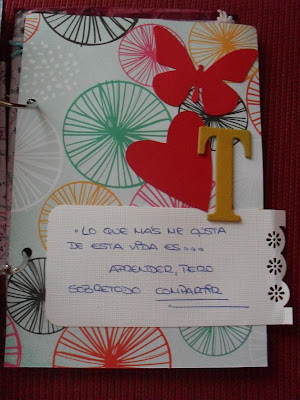 T
. LO QUE MÁS ME GUSTA
DE ESTA VIDA ES...
APRENDER, PERO
SOBRETODO COMPARTIR